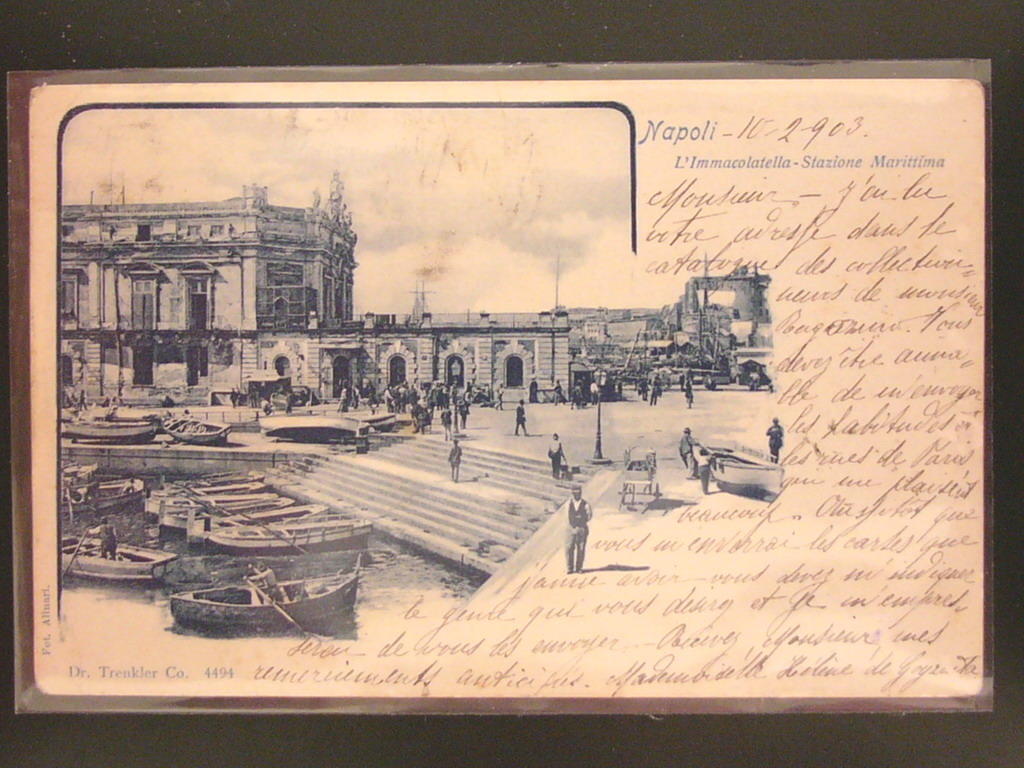 Napoli - 10-2-903.
L'Immacolatella - Stazione Marittima
Monsieur - j'ai lu
votre adresse dans le
catalogue des collection=
neurs de monsieur
Vous
devez être aima=
ble de m'envoyer
les habitudes
les rues de Paris
qui me plaisent
beaucoup. que
vous m'enverrai les cartes que
j'aurai avoir - vous devez m'indiquer
le genre que vous desirez et je m'empres=
serai de vous les envoyer. - Recevez Monsieur mes
remerciements anticipés. Mademoiselle Hélène de
Fot. Alinari.
Dr. Trenkler Co. 4494